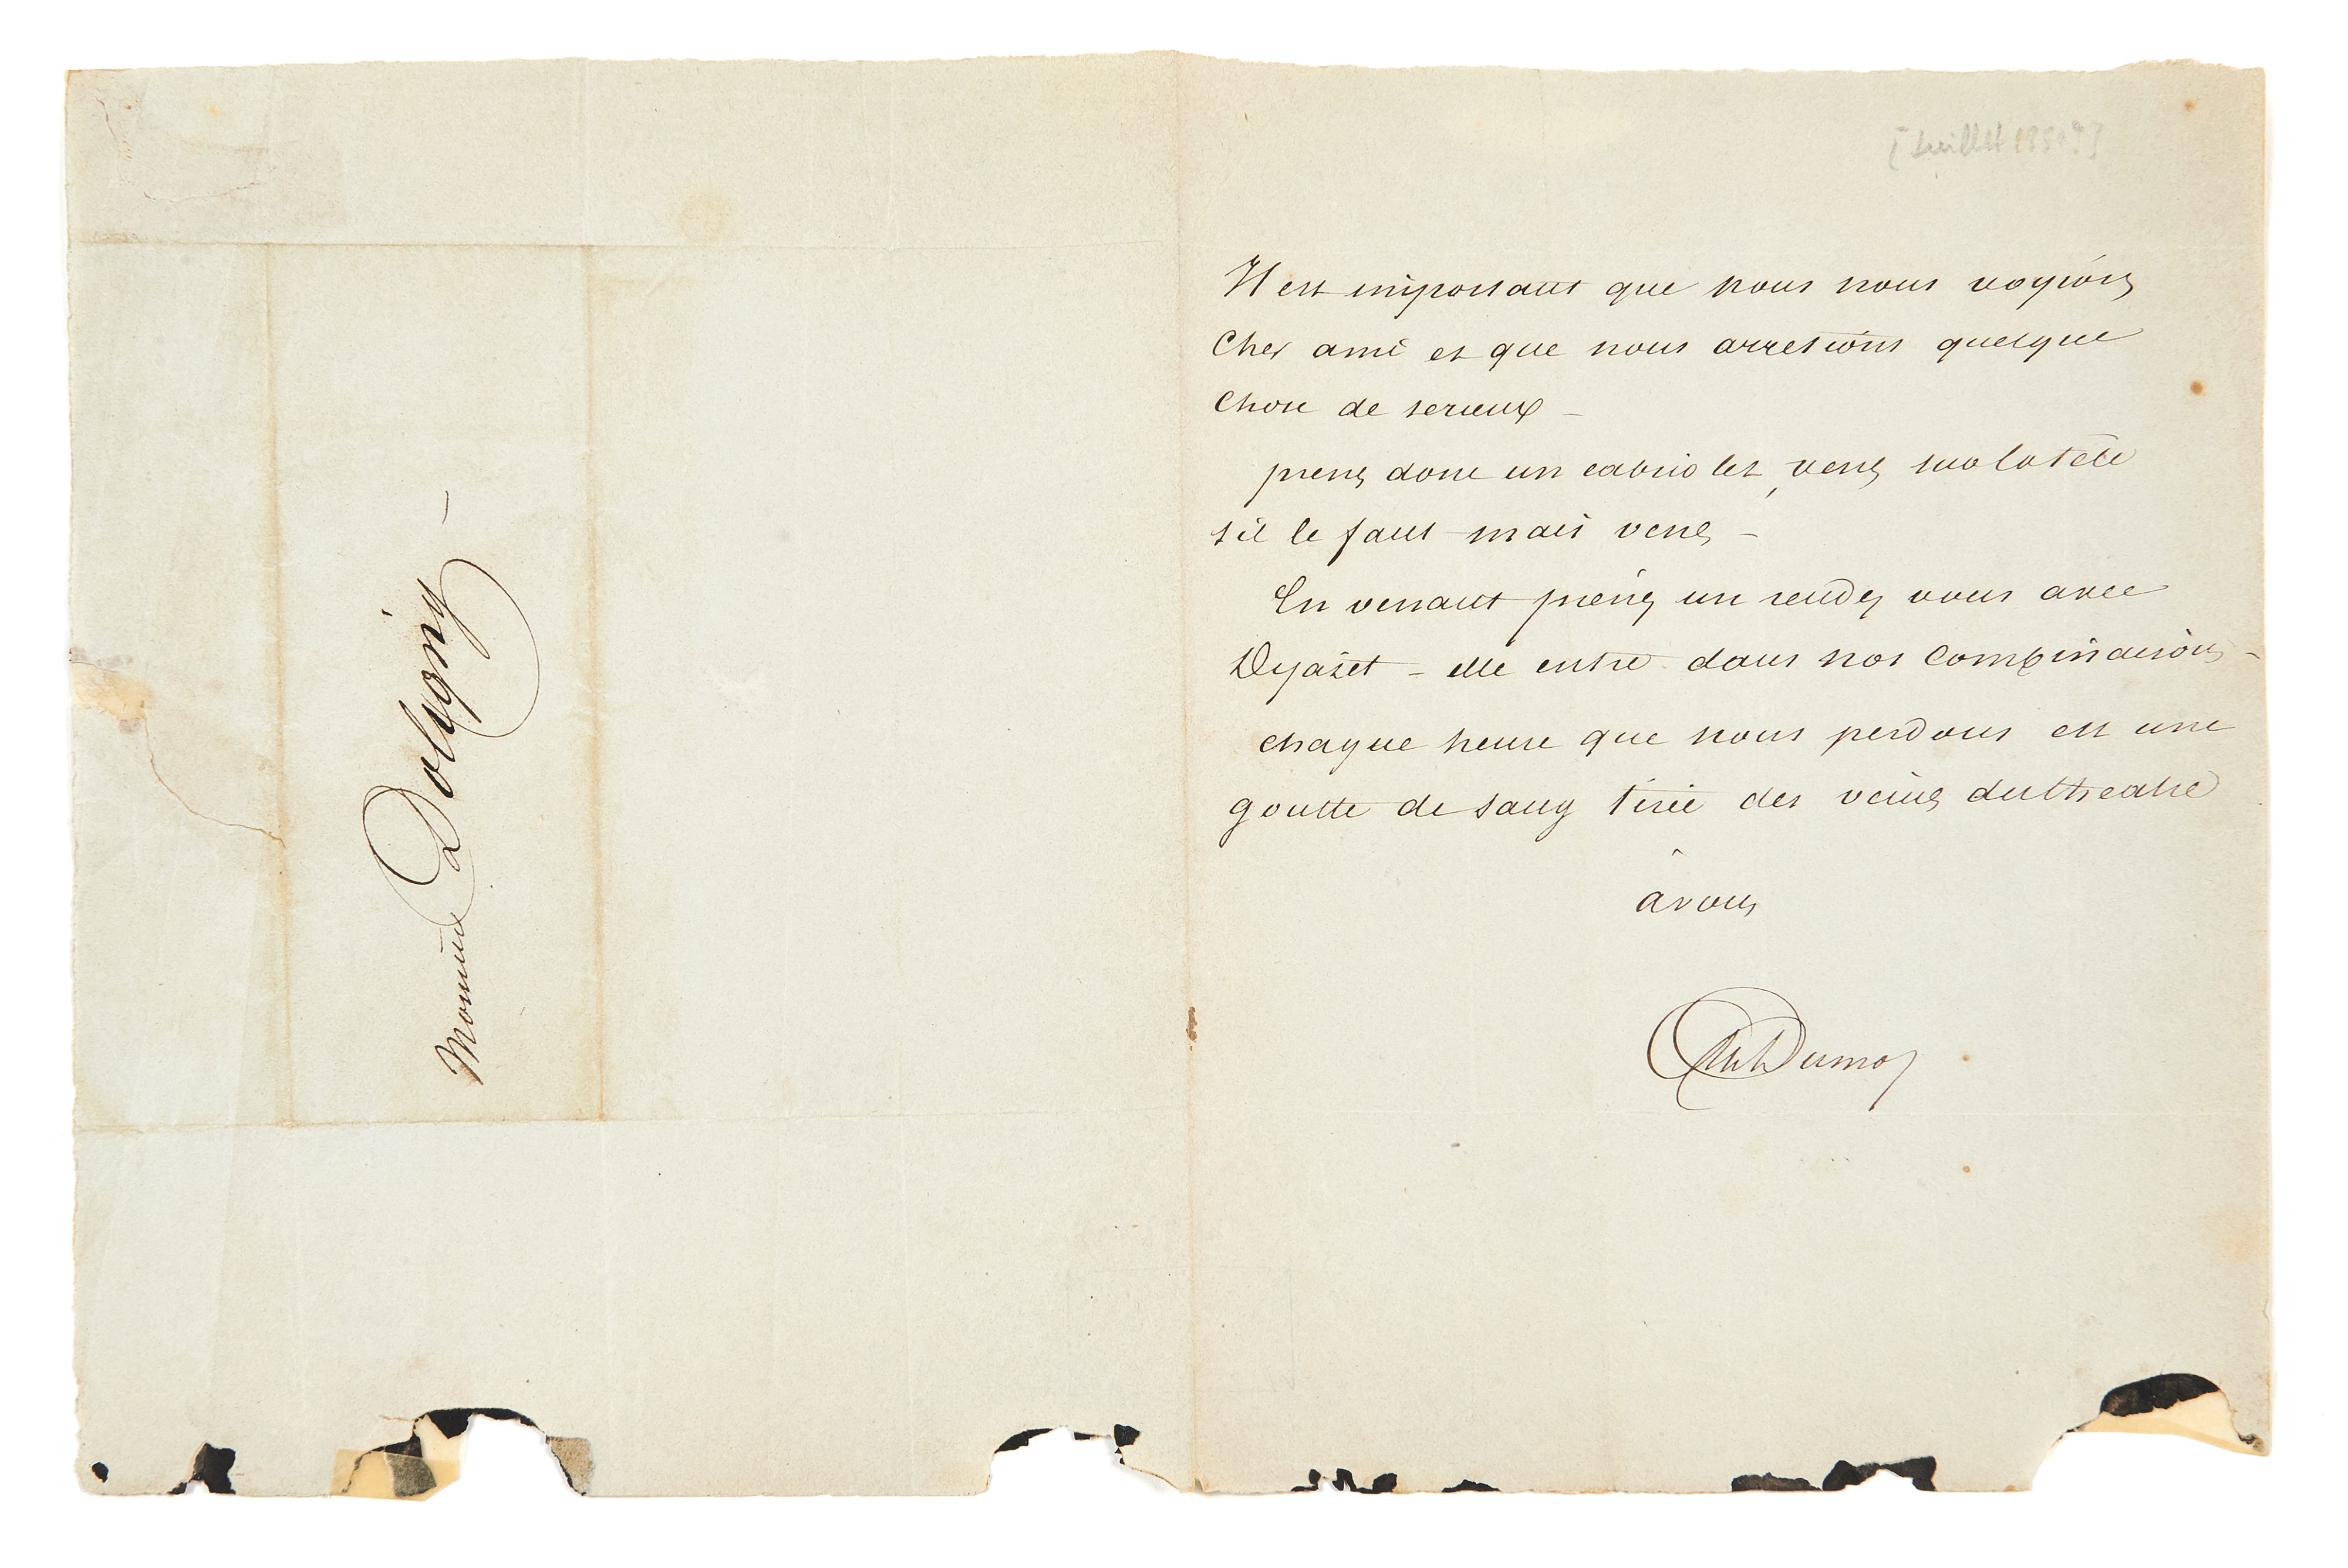 Monsieur Doligny -
[Juillet 1850?]
Il est important que nous nous voyions
Cher ami et que nous arretions quelque
chose de serieux -
prenez donc un cabriolet, venez sur la tête
s'il le faut mais venez -
En venant prenez un rendez vous avec
Dejazet - elle entre dans nos combinaisons -
chaque heure que nous perdons est une
goutte de sang tirée des veines du theatre
à vous
Alex Dumas